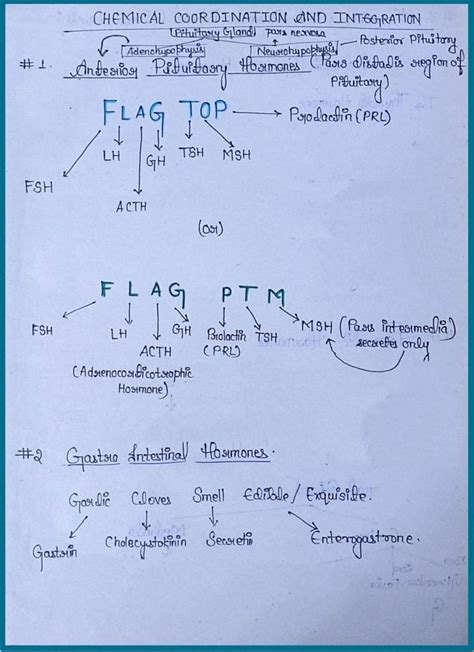 CHEMICAL COORDINATION AND INTEGRATION
(Pituitary Gland) pars nervosa
Adenohypophysis Neurohypophysis Posterior Pituitary
#1. Anterior Pituitary Hormones (Pars distalis region of
Pituitary)
FLAG TOP → Prolactin (PRL)
LH GH TSH MSH
FSH
ACTH
(or)
FLAG PTM
FSH LH GH Prolactin TSH MSH (Pars intermedia)
ACTH (PRL) secretes only
(Adrenocordicotrophic
Hormone)
#2 Gastro Intestinal Hormones.
Garlic Cloves Smell Edible/Exquisite.
Gastrin Cholecystokinin Secretin Enterogastrone.